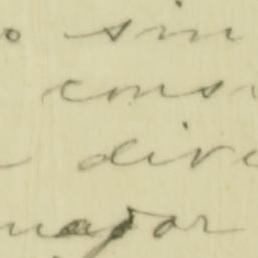 o sin
cons
dive
mayor